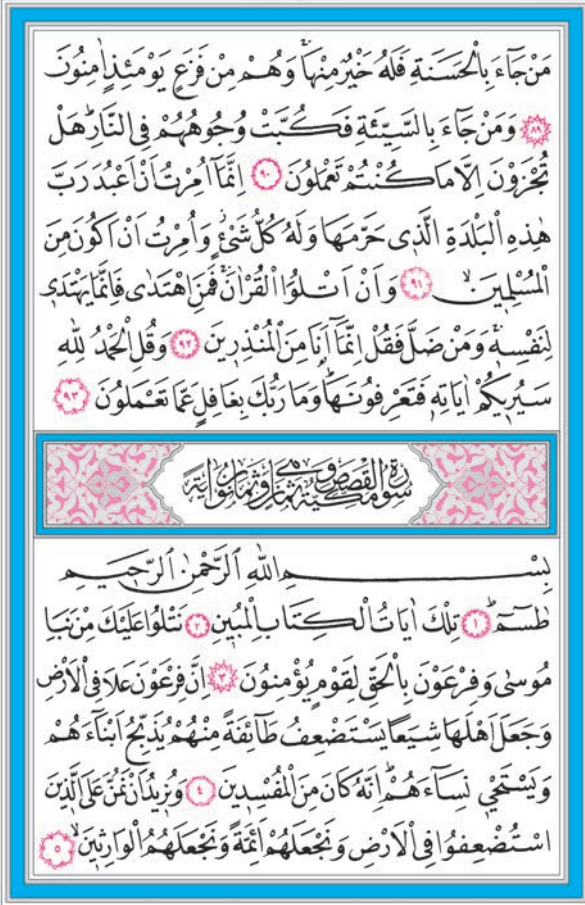 مَنْ جَٓاءَ بِالْحَسَنَةِ فَلَهُ خَيْرٌ مِنْهَاۚ وَهُمْ مِنْ فَزَعٍ يَوْمَئِذٍ اٰمِنُونَ
﴿٨٩﴾ وَمَنْ جَٓاءَ بِالسَّيِّئَةِ فَكُبَّتْ وُجُوهُهُمْ فِي النَّارِۜ هَلْ
تُجْزَوْنَ اِلَّا مَا كُنْتُمْ تَعْمَلُونَ ﴿٩٠﴾ اِنَّمَٓا اُمِرْتُ اَنْ اَعْبُدَ رَبَّ
هٰذِهِ الْبَلْدَةِ الَّذ۪ي حَرَّمَهَا وَلَهُ كُلُّ شَيْءٍۘ وَاُمِرْتُ اَنْ اَكُونَ مِنَ
الْمُسْلِم۪ينَۙ ﴿٩١﴾ وَاَنْ اَتْلُوَا الْقُرْاٰنَۚ فَمَنِ اهْتَدٰى فَاِنَّمَا يَهْتَد۪ي
لِنَفْسِه۪ۚ وَمَنْ ضَلَّ فَقُلْ اِنَّمَٓا اَنَا مِنَ الْمُنْذِر۪ينَ ﴿٩٢﴾ وَقُلِ الْحَمْدُ لِلّٰهِ
سَيُر۪يكُمْ اٰيَاتِه۪ فَتَعْرِفُونَهَاۜ وَمَا رَبُّكَ بِغَافِلٍ عَمَّا تَعْمَلُونَ ﴿٩٣﴾
سُورَةُ الْقَصَصِ مَكِّيَّةٌ وَهِيَ ثَمَانٌ وَثَمَانُونَ اٰيَةً
بِسْمِ اللّٰهِ الرَّحْمٰنِ الرَّح۪يمِ
طٰسٓمٓۜ ﴿١﴾ تِلْكَ اٰيَاتُ الْكِتَابِ الْمُب۪ينِ ﴿٢﴾ نَتْلُوا عَلَيْكَ مِنْ نَبَأِ
مُوسٰى وَفِرْعَوْنَ بِالْحَقِّ لِقَوْمٍ يُؤْمِنُونَ ﴿٣﴾ اِنَّ فِرْعَوْنَ عَلَا فِي الْاَرْضِ
وَجَعَلَ اَهْلَهَا شِيَعًا يَسْتَضْعِفُ طَٓائِفَةً مِنْهُمْ يُذَبِّحُ اَبْنَٓاءَهُمْ
وَيَسْتَحْي۪ نِسَٓاءَهُمْۜ اِنَّهُ كَانَ مِنَ الْمُفْسِد۪ينَ ﴿٤﴾ وَنُر۪يدُ اَنْ نَمُنَّ عَلَى الَّذ۪ينَ
اسْتُضْعِفُوا فِي الْاَرْضِ وَنَجْعَلَهُمْ اَئِمَّةً وَنَجْعَلَهُمُ الْوَارِث۪ينَۙ ﴿٥﴾